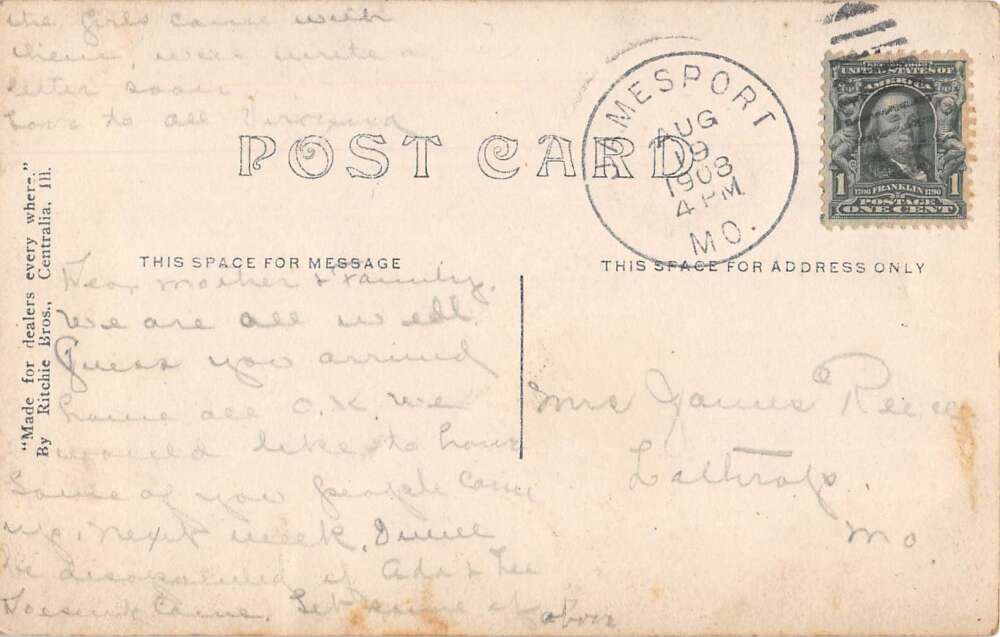 the Girls come with
them, will write a
letter soon
Love to all Virginia
POST CARD
JAMESPORT
AUG
19
1908
4 PM
MO.
UNITED STATES OF
AMERICA
1706 FRANKLIN 1790
1 POSTAGE 1
ONE CENT
"Made for dealers every where."
By Ritchie Bros., Centralia, Ill.
THIS SPACE FOR MESSAGE
THIS SPACE FOR ADDRESS ONLY
Dear Mother & Family,
We are all well.
Guess you arrived
home all O.K. We
would like to have
Some of you people come
up next week. I will
be disapointed if Ada & Lee
Doesn't Come. Let some of
above
Mrs James Reece
Lathrop.
Mo.